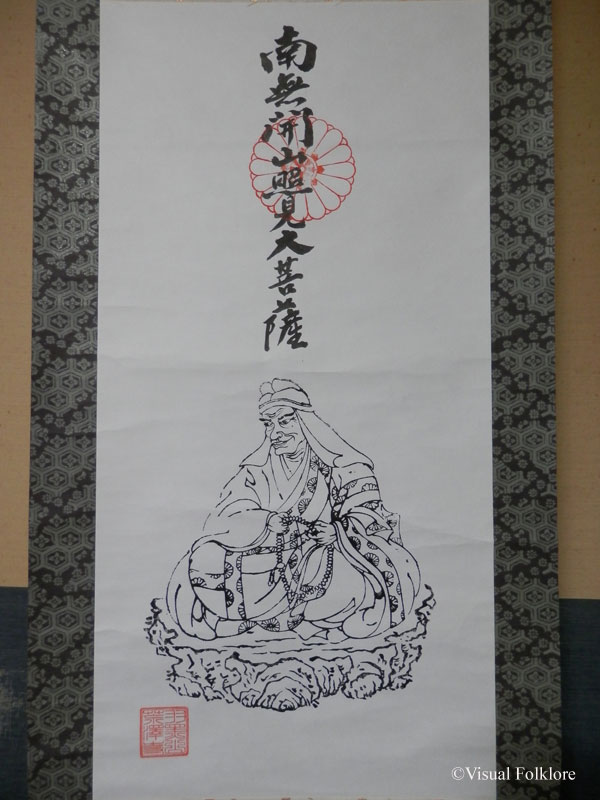 南無開山照見大菩薩
©Visual Folklore